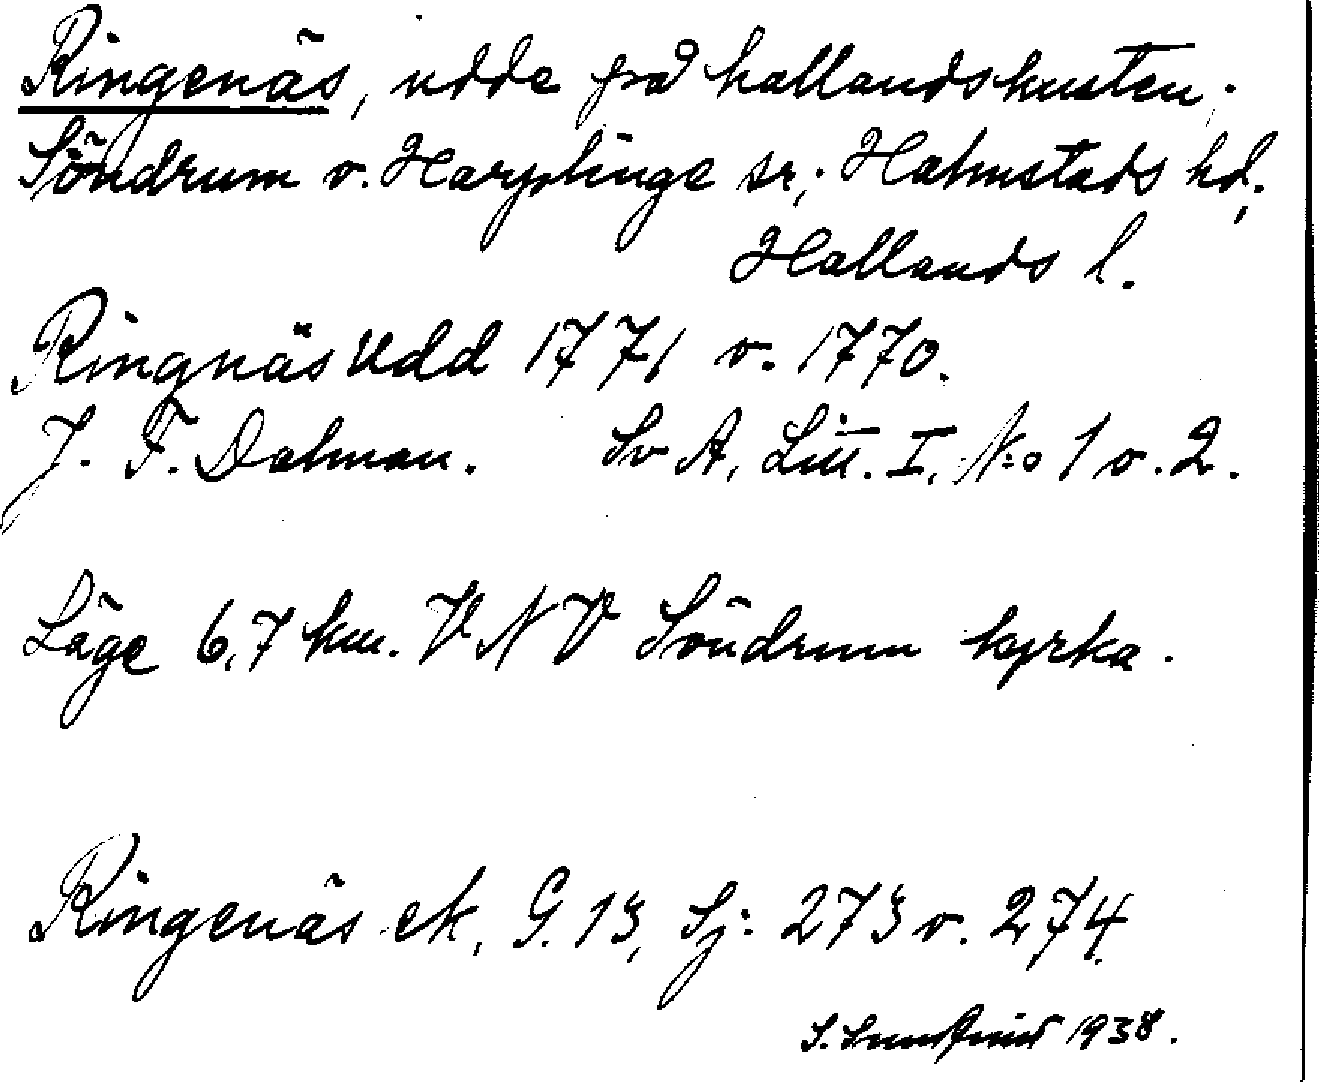 Ringenäs, udde på hallandskusten;
Söndrum o. Harplinge sr; Halmstads hd;
Hallands l.
Ringnäs Udd 1771 o. 1770.
J. F. Dalman. Sv A, Litt. I, N:o 1 o. 2.
Läge 6,7 km. VNV Söndrum kyrka.
Ringenäs ek, G. 13, Sj: 273 o. 274.
S. 1938.